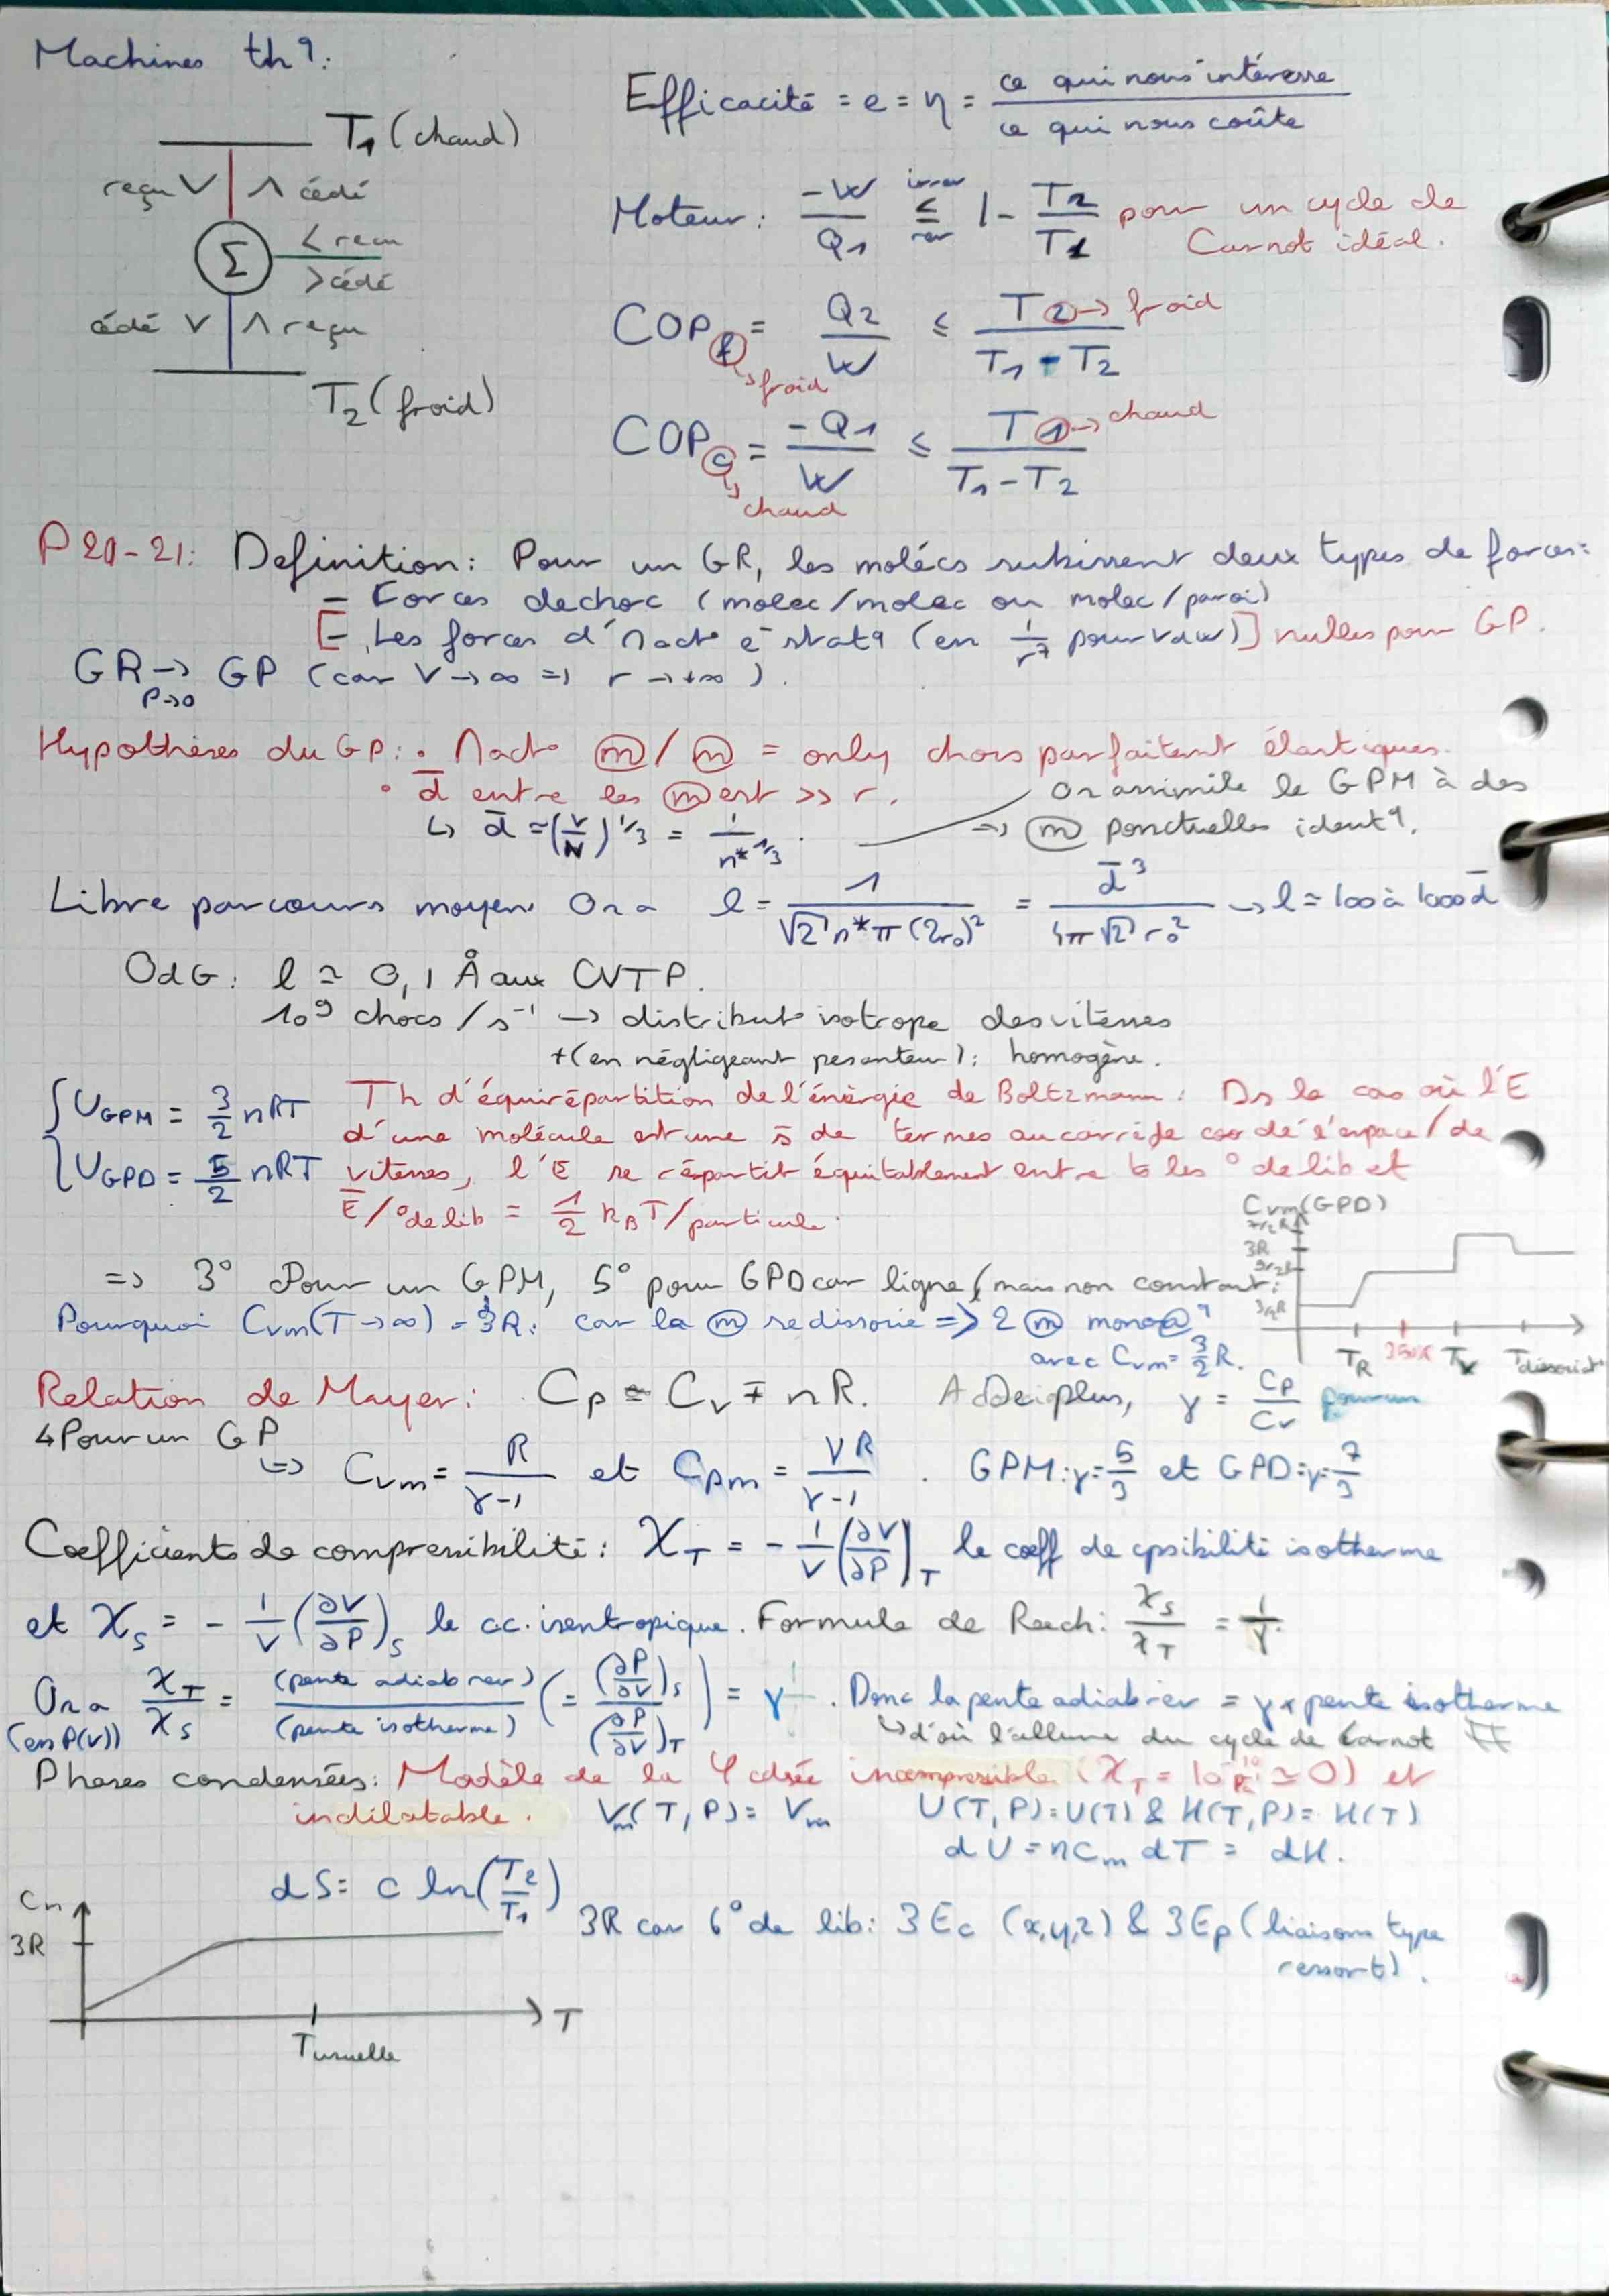 Machines thq:
Efficacité = e = η = ce qui nous intéresse / ce qui nous coûte
T₁ (chaud)
reçu V | Λ cédé
Σ < reçu
> cédé
cédé V | Λ reçu
T₂ (froid)
Moteur : -W/Q₁ ≤ (irrev / rev) 1 - T₂/T₁ pour un cycle de
Carnot idéal.
COP_f = Q₂/W ≤ T₂ → froid / T₁ - T₂
↳ froid
COP_c = -Q₁/W ≤ T₁ → chaud / T₁ - T₂
↳ chaud
P 20-21 : Definition : Pour un GR, les molécs subissent deux types de forces :
- Forces de choc (molec/molec ou molec/paroi)
[- Les forces d'∩act° é stat9 (en 1/r⁷ pour VdW)] nulles pour GP.
GR → GP (car V → ∞ => r → +∞).
P→0
Hypothèses du GP : • ∩act° (m)/(m) = only chocs parfaitemt élastiques.
• d̄ entre les (m) est >> r.
On assimile le GPM à des
↳ d̄ ≃ (V/N)^1/3 = 1/n*^1/3
=> (m) ponctuelles ident9.
Libre parcours moyen On a l = 1/(√2 n* π (2r₀)²) = d̄³/(4π√2 r₀²) → l ≃ 100 à 1000 d̄
OdG : l ≃ 0,1 Å aux CNTP.
10⁹ chocs / s⁻¹ → distribut° isotrope des vitesses
+ (en négligeant pesanteur) : homogène.
{ U_GPM = 3/2 nRT
{ U_GPD = 5/2 nRT
Th d'équirépartition de l'énérgie de Boltzmann : Ds le cas où l'E
d'une molécule est une s̄ de termes au carré de coordé l'espace/de
vitesses, l'E se répartit équitablement entre ts les ° de lib et
Ē/° de lib = 1/2 k_B T/particule.
C_vm (GPD)
7/2 R
3R
5/2 R
3/2 R
T_R 350K T_V T dissociat°
=> 3° Pour un GPM, 5° pour GPD car ligne (mais non constant :
Pourquoi C_vm(T→∞) = 3R : car la (m) se dissocie => 2 (m) mono@9
avec C_vm = 3/2 R.
Relation de Mayer : C_p = C_v + nR. De plus, γ = C_p/C_v pour un
↳ Pour un GP
=> C_vm = R/(γ-1) et C_pm = γR/(γ-1). GPM : γ = 5/3 et GPD : γ = 7/3
Coefficients de compressibilité : χ_T = -1/V (∂V/∂P)_T le coeff de cpsibilité isotherme
et χ_S = -1/V (∂V/∂P)_S le cc. isentropique. Formule de Reech : χ_S/χ_T = 1/γ
On a χ_T/χ_S = (pente adiab rev)/(pente isotherme) (= (∂P/∂V)_S / (∂P/∂V)_T) = γ. Donc la pente adiab rev = γ × pente isotherme
(en P(V))
↳ d'où l'allure du cycle de Carnot
Phases condensées : Modèle de la φ cdsée incompressible (χ_T = 10⁻¹⁰ Pa⁻¹ ≃ 0) et
indilatable. V_m(T, P) = V_m U(T, P) = U(T) & H(T, P) = H(T)
dU = nC_m dT = dH.
dS = C ln(T₂/T₁)
C_m
3R
T
T usuelle
3R car 6° de lib : 3 Ec (x,y,z) & 3 Ep (liaisons type
ressort).